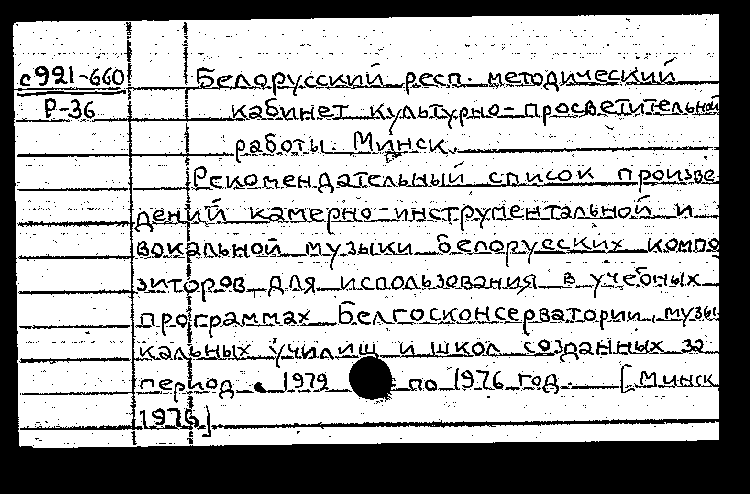 с921-660 Белорусский респ. методический
Р-36 кабинет культурно-просветительной
работы. Минск.
Рекомендательный список произве-
дений камерно-инструментальной и
вокальной музыки белорусских компо
зиторов для использования в учебных
программах Белгосконсерватории, музы
кальных училищ и школ созданных за
период с 1979 по 1976 год. [Минск
1976]